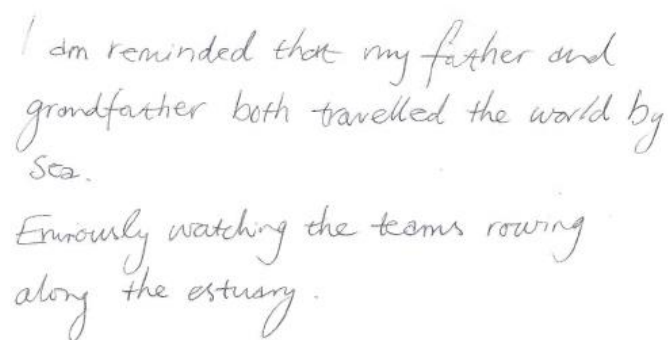 I am reminded that my father and
grandfather both travelled the world by
sea.
Enviously watching the teams rowing
along the estuary.